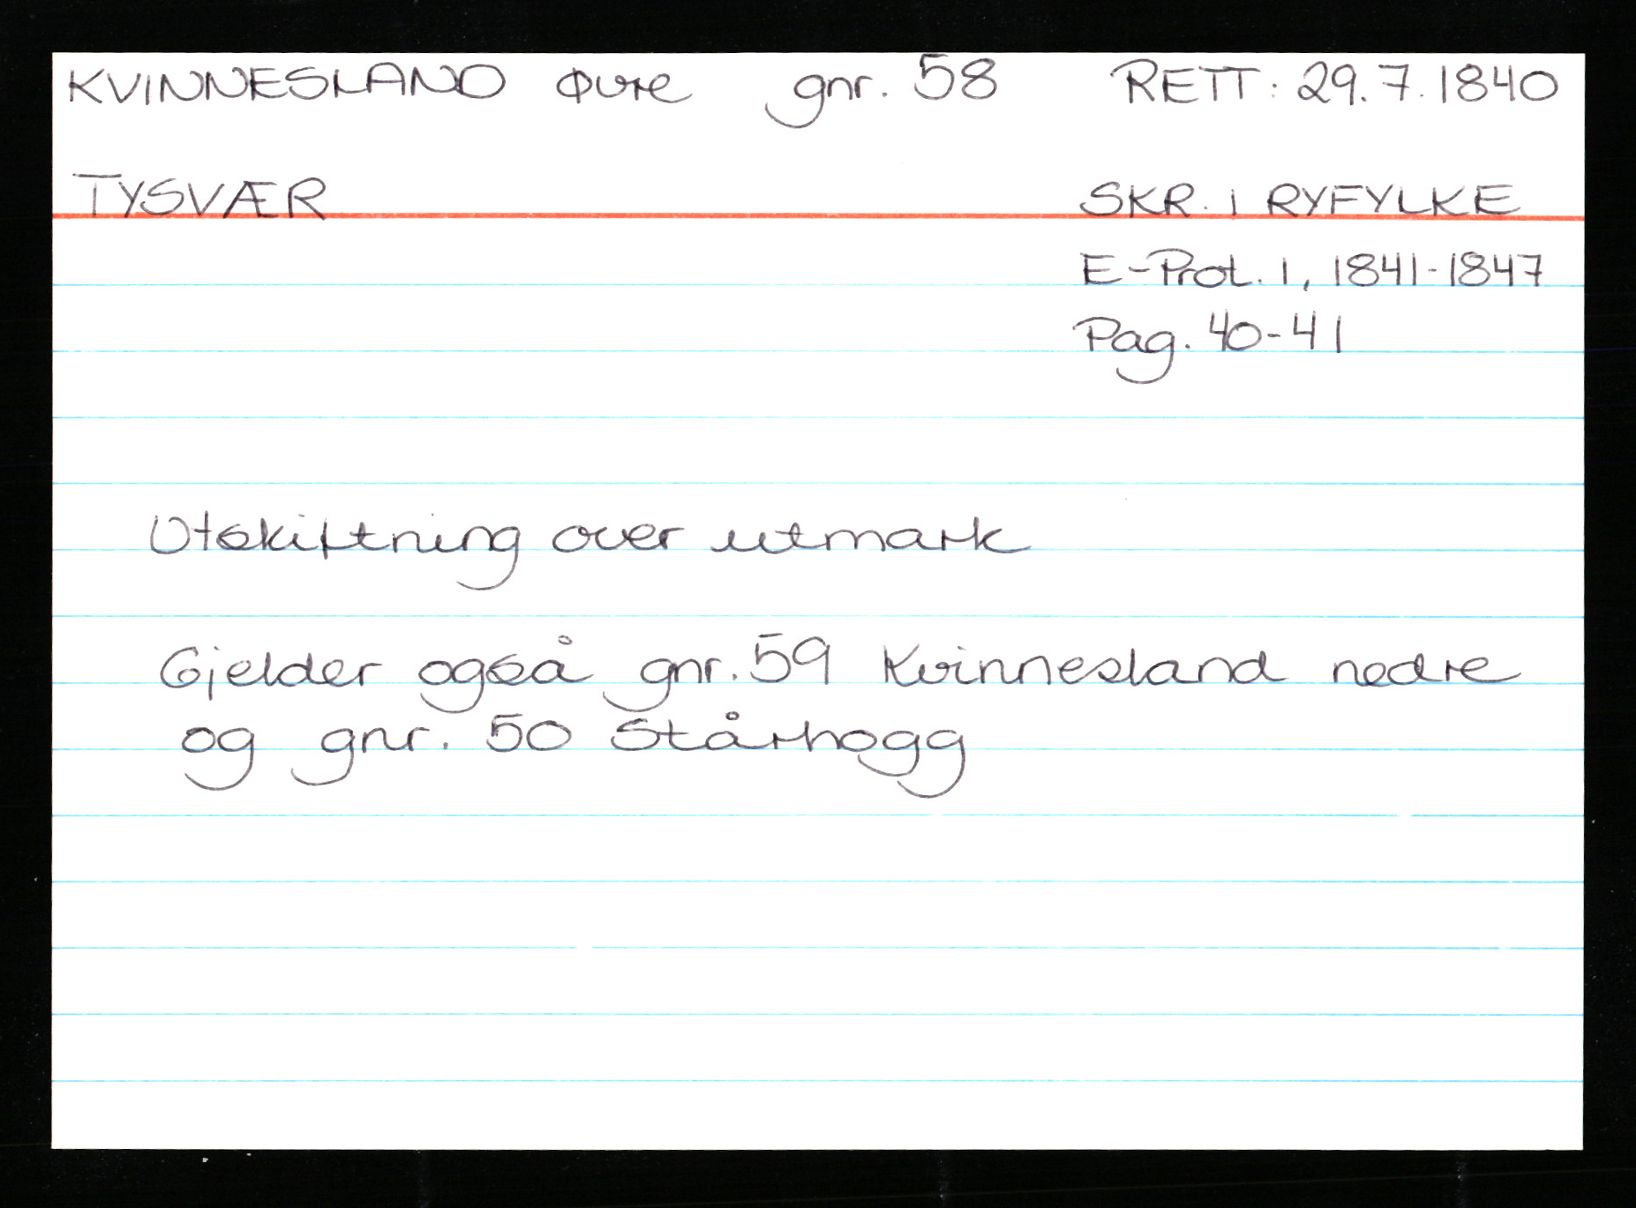 KVINNESLAND Øvre gnr. 58 RETT: 29.7.1840
TYSVÆR SKR. I RYFYLKE
E-Prot. 1, 1841-1847
Pag. 40-41
Utskiftning over utmark
Gjelder også gnr. 59 Kvinnesland nedre
og gnr. 50 Stårhogg